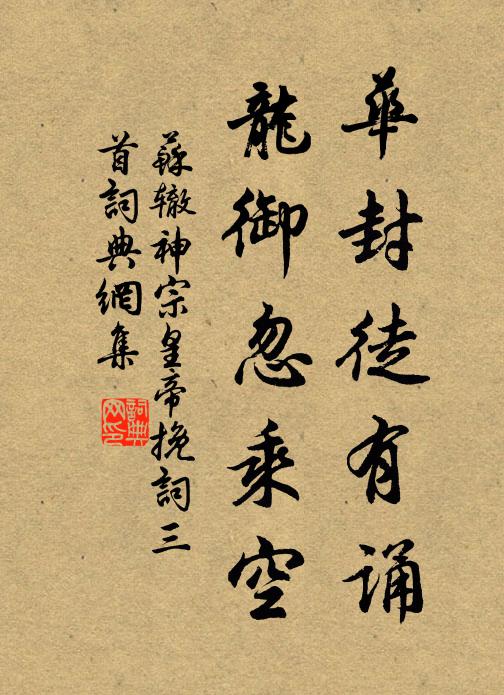 華封徒有誦
龍御忽乘空
蘇辙神宗皇帝挽詞三
首詞典網集
詞典
网印